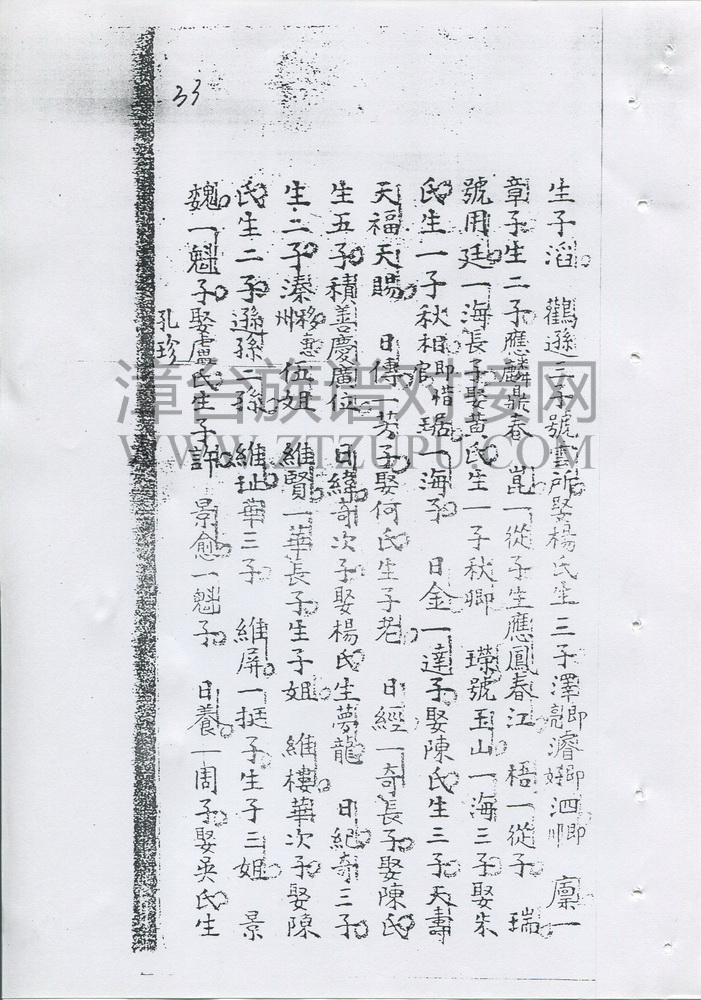 33
生子滔 鸛遜三子號雲所娶楊氏生三子澤卽濬卽泗卽 廩一
章子生二子應麟鼎春 崑一從子生應鳳春江 梧一從子 瑞
號用廷一海長子娶黃氏生一子秋卿 璨號玉山一海三子娶朱
氏生一子秋相卽惜 琚一海子 日金一達子娶陳氏生三子天壽
天福天賜 日傳一芳子娶何氏生子老 日經一奇長子娶陳氏
生五子積善慶廣位 日緯奇次子娶楊氏生夢龍 日紀奇三子
生二子溱移惠州伍姐 維賢一華長子生子姐 維樓華次子娶陳
氏生二子遜孫二孫 維址華三子 維屏一挺子生子三姐 景
魏一魁子娶盧氏生子許 景愈一魁子 日養一周子娶吳氏生
孔珍
漳台族谱对接网
WWW.ZTZUPU.COM